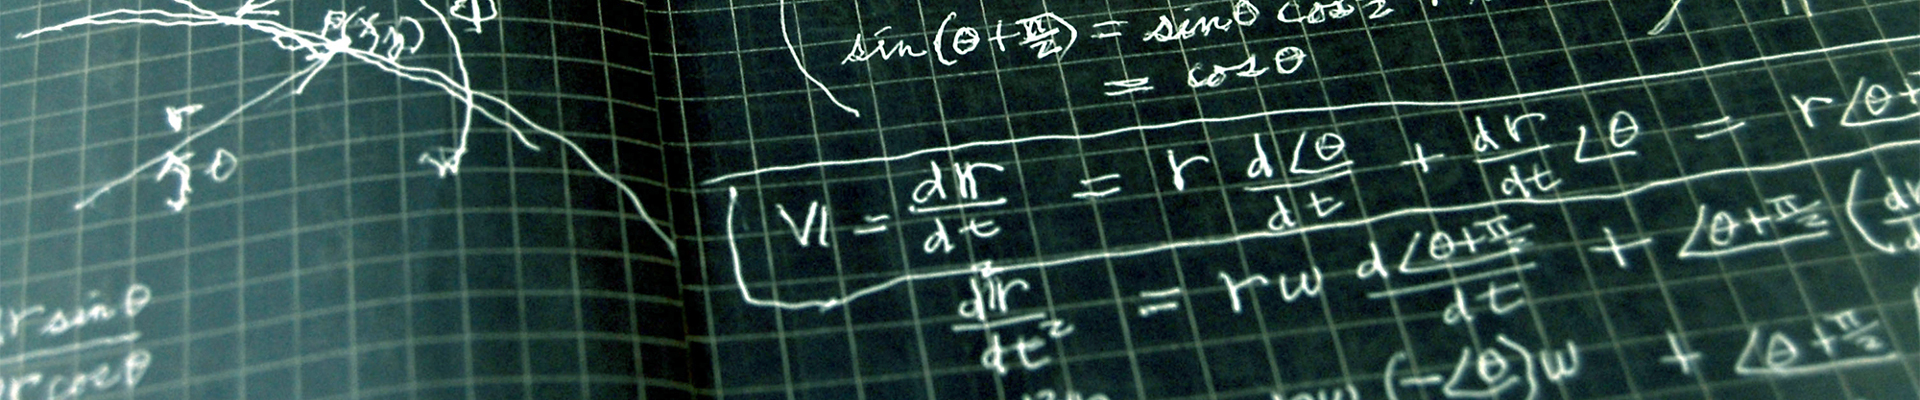 P(x,y)
r
θ
r sinθ
r cosθ
sin(θ+π/2) = sinθ cos
= cosθ
V = dr/dt = r d∠θ/dt + dr/dt ∠θ = r∠θ+
d²r/dt² = rw d∠θ+π/2/dt + ∠θ+π/2 (dr
(-∠θ)w + ∠θ+π/2